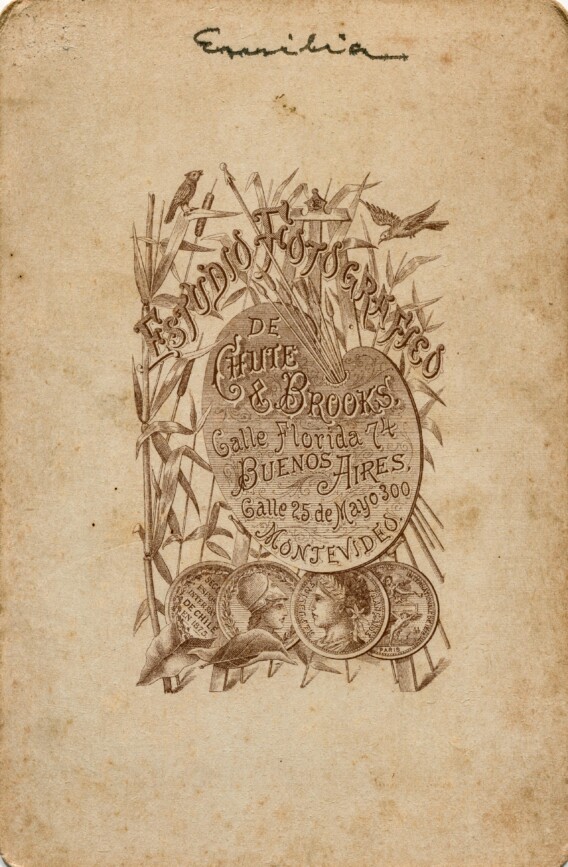 Emilia
ESTUDIO FOTOGRÁFICO
DE
CHUTE
& BROOKS.
Calle Florida 74
BUENOS AIRES.
Calle 25 de Mayo 300
MONTEVIDEO.
DE CHILE
EN 1875
PARIS